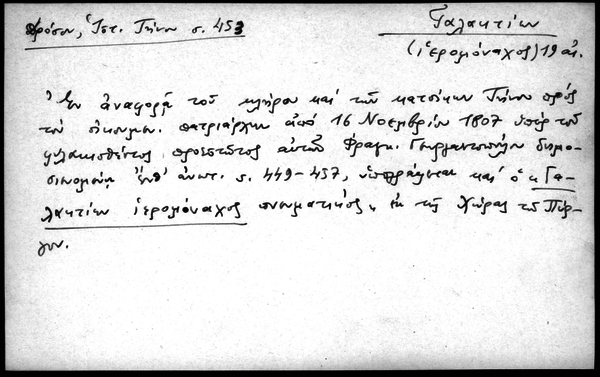 Δρόσου, Ἱστ. Τήνου σ. 453
Γαλακτίων
(ἱερομόναχος) 19 αἰ.
Ἐν ἀναφορᾷ τοῦ κλήρου καὶ τῶν κατοίκων Τήνου πρὸς
τὸν οἰκουμεν. πατριάρχην ἀπὸ 16 Νοεμβρίου 1807 ὑπὲρ τοῦ
φυλακισθέντος προεστῶτος αὐτῶν Φραγκ. Γεωργαντοπούλου δημο-
σιευομένῃ ἔνθ' ἀνωτ. σ. 449-457, ὑπογράφεται καὶ ὁ "Γα-
λακτίων ἱερομόναχος πνευματικός", ἐκ τῆς Χώρας τοῦ Πύρ-
γου.